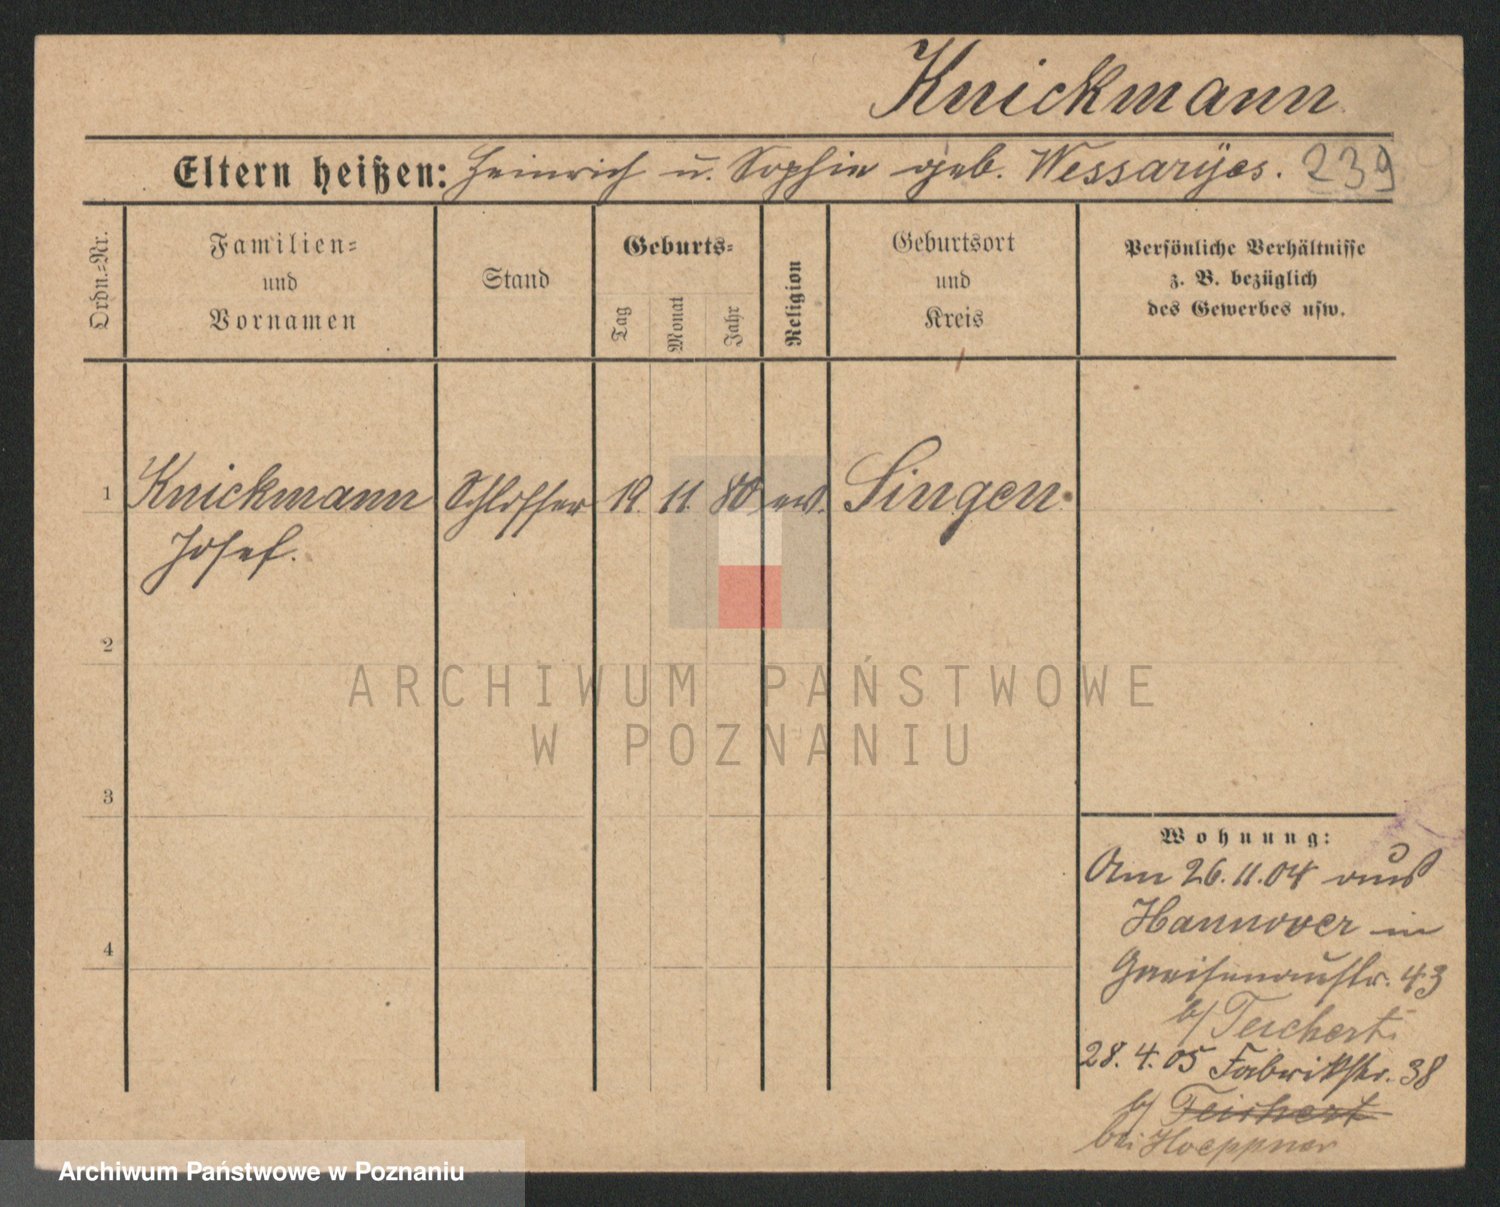 Knickmann
Eltern heißen: Heinrich u. Sophie geb. Wessarges. 239
Ordn.=Nr.
Familien=
und
Vornamen
Stand
Geburts=
Tag
Monat
Jahr
Religion
Geburtsort
und
Kreis
Persönliche Verhältnisse
z. B. bezüglich
des Gewerbes usw.
1 Knickmann Schlosser 19. 11. 80 ev. Singen.
Josef.
2
ARCHIWUM PAŃSTWOWE
W POZNANIU
3
Wohnung:
Am 26.11.04 aus
Hannover in
Gneisenaustr. 43
b/ Teichert.
4
28. 4. 05 Fabrikstr. 38
b/ Teichert
bei Hoeppner
Archiwum Państwowe w Poznaniu